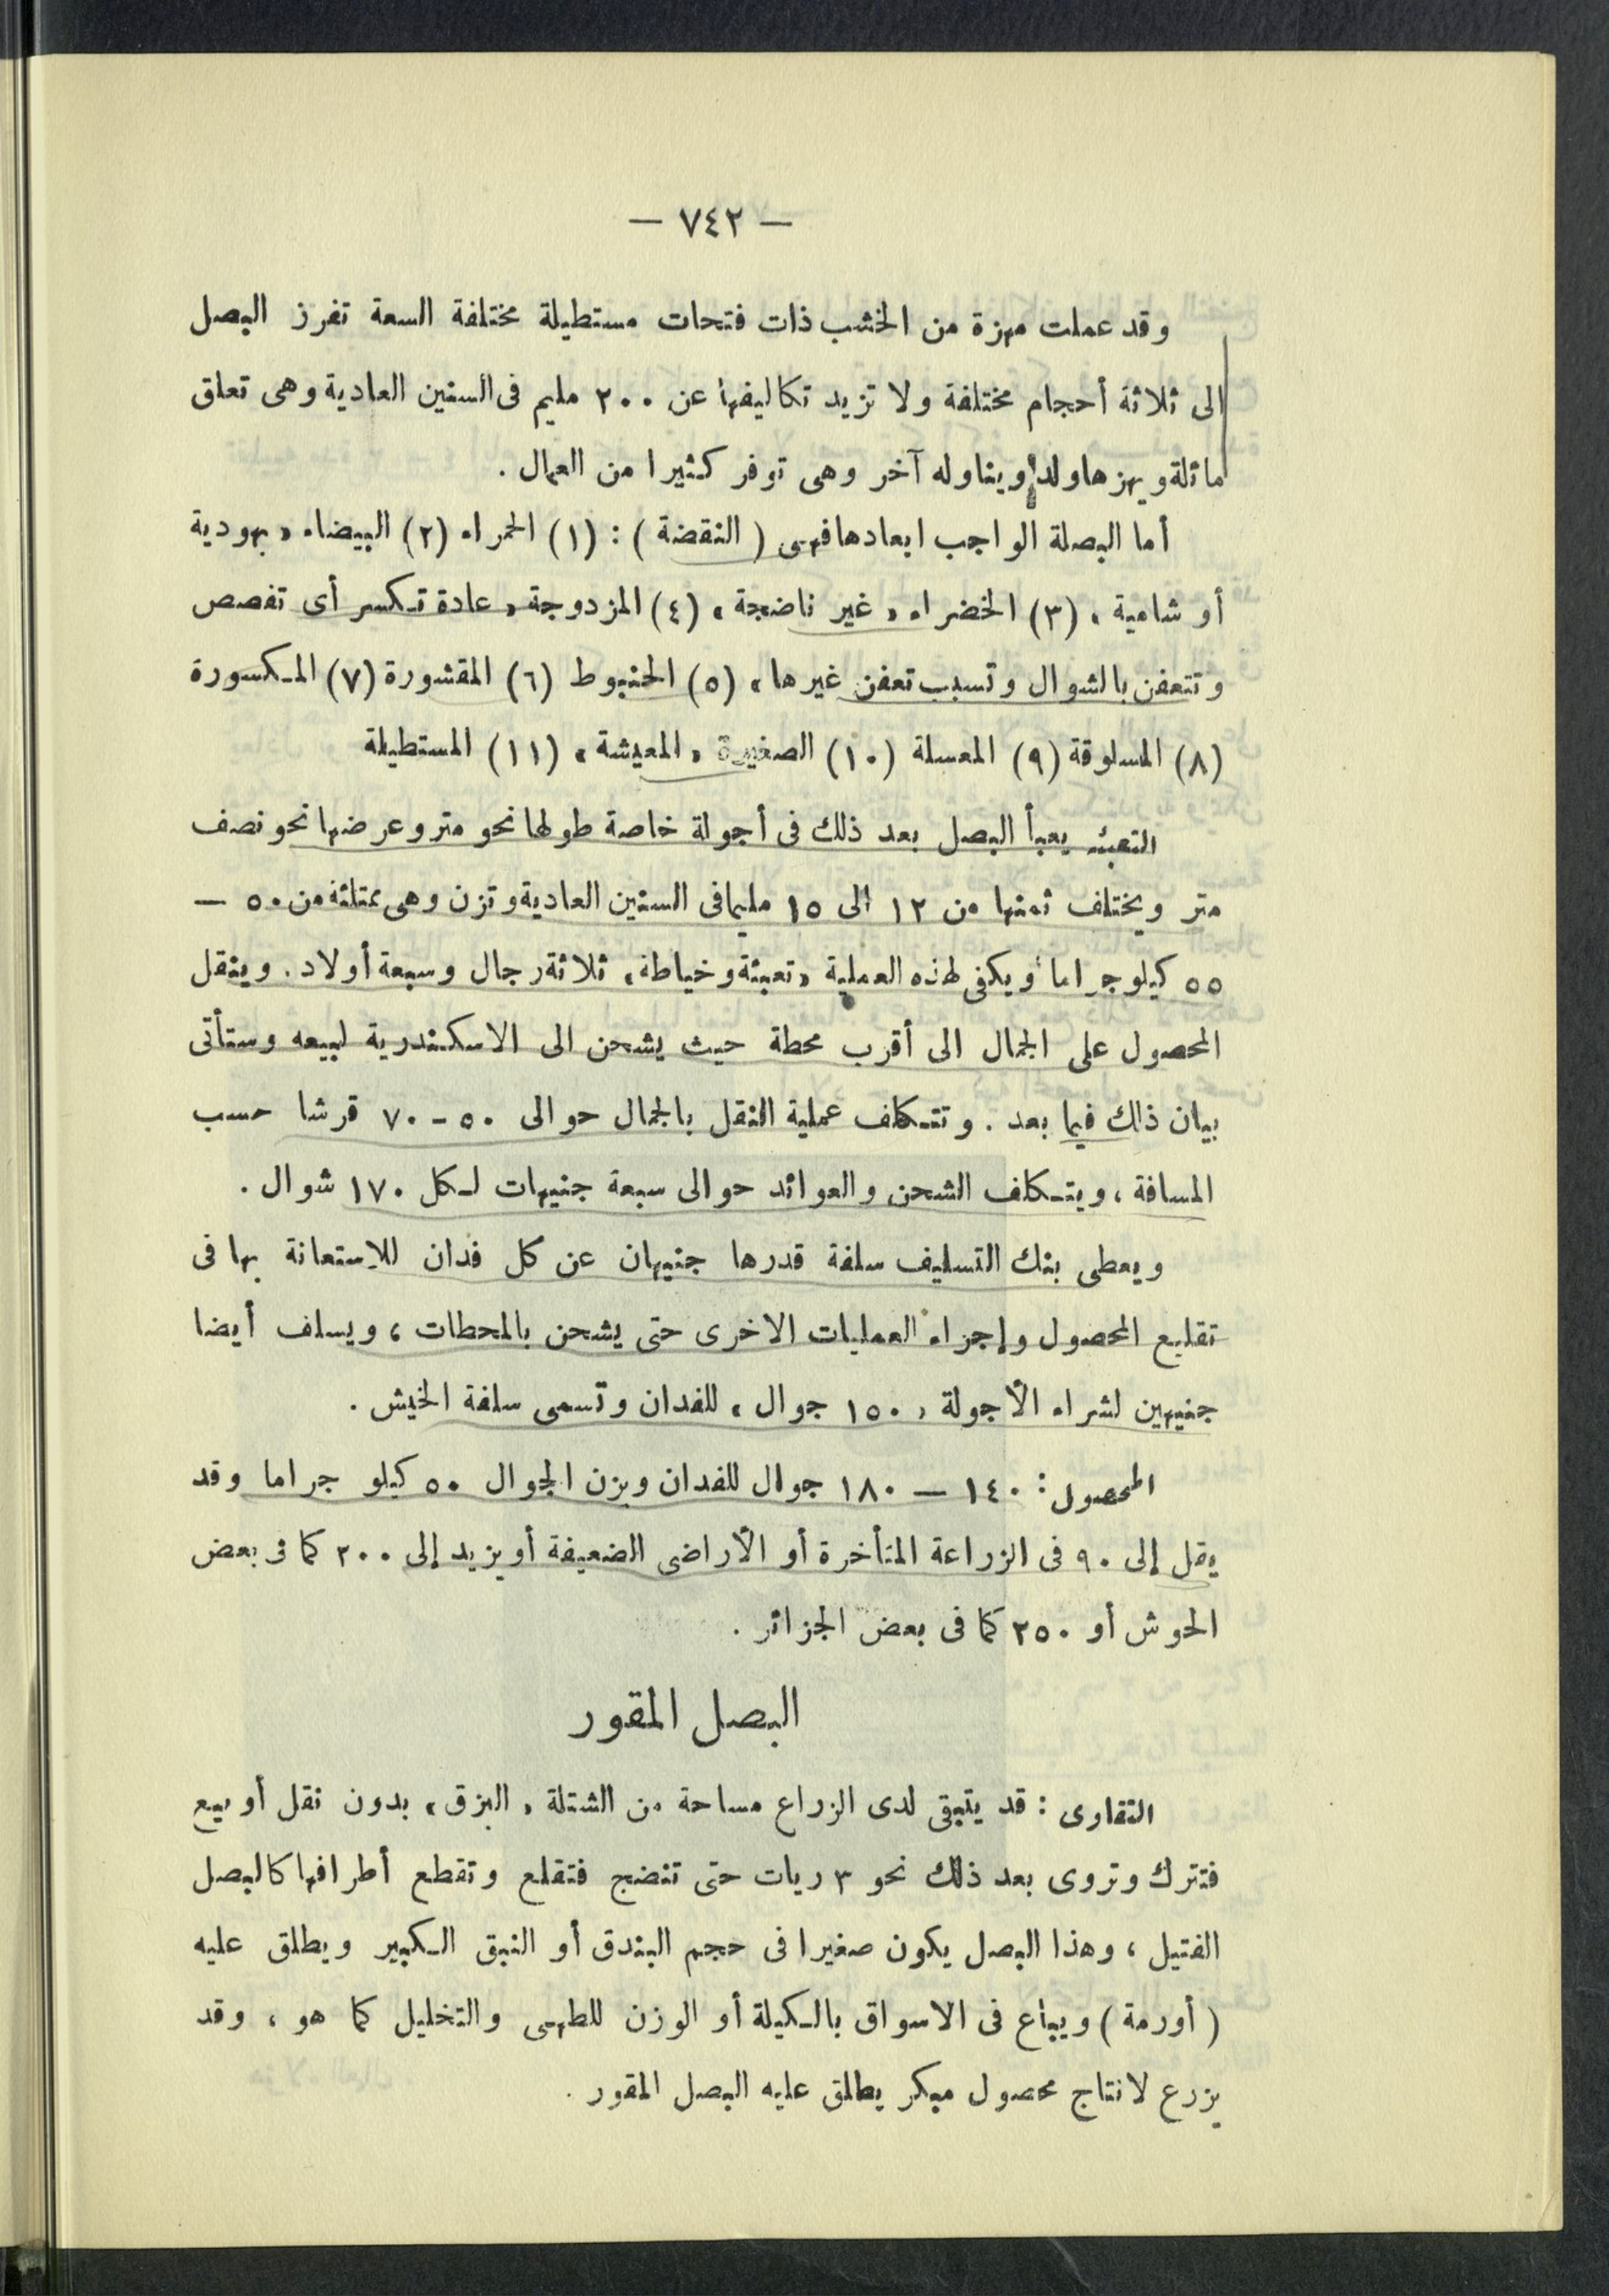 — ٧٤٢ —
وقد عملت مهزة من الخشب ذات فتحات مستطيلة مختلفة السعة تفرز البصل
الى ثلاثة أحجام مختلفة ولا تزيد تكاليفها عن ٢٠٠ مليم فى السنين العادية وهى تعلق
مائلة ويهزها ولد ويناوله آخر وهى توفر كثيرا من العمال .
أما البصلة الواجب ابعادها فهى ( النقضة ) : (١) الحمراء (٢) البيضاء « يهودية
أو شامية » (٣) الخضراء « غير ناضجة » (٤) المزدوجة « عادة تكسر أى تفصص
وتتعفن بالشوال وتسبب تعفن غيرها » (٥) الحنبوط (٦) المقشورة (٧) المكسورة
(٨) المسلوقة (٩) المعسلة (١٠) الصغيرة « المعيشة » (١١) المستطيلة
التعبئه يعبأ البصل بعد ذلك فى أجولة خاصة طولها نحو متر وعرضها نحو نصف
متر ويختلف ثمنها من ١٢ الى ١٥ مليما فى السنين العادية وتزن وهى ممتلئة من ٥٠ —
٥٥ كيلو جراما ويكفى لهذه العملية « تعبئة وخياطة » ثلاثة رجال وسبعة أولاد . وينقل
المحصول على الجمال الى أقرب محطة حيث يشحن الى الاسكندرية لبيعه وستأتى
بيان ذلك فيما بعد . وتتكلف عملية النقل بالجمال حوالى ٥٠ - ٧٠ قرشا حسب
المسافة ، ويتكلف الشحن والعوائد حوالى سبعة جنيهات لكل ١٧٠ شوال .
ويعطى بنك التسليف سلفة قدرها جنيهان عن كل فدان للاستعانة بها فى
تقليع المحصول وإجراء العمليات الاخرى حتى يشحن بالمحطات ، ويسلف أيضا
جنيهين لشراء الأجولة « ١٥٠ جوال » للفدان وتسمى سلفة الخيش .
المحصول : ١٤٠ — ١٨٠ جوال للفدان ويزن الجوال ٥٠ كيلو جراما وقد
يقل إلى ٩٠ فى الزراعة المتأخرة أو الأراضى الضعيفة أو يزيد إلى ٢٠٠ كما فى بعض
الحوش أو ٢٥٠ كما فى بعض الجزائر .
البصل المقور
التقاوى : قد يتبقى لدى الزراع مساحة من الشتلة « البزق » بدون نقل أو بيع
فتترك وتروى بعد ذلك نحو ٣ ريات حتى تنضج فتقلع وتقطع أطرافها كالبصل
الفتيل ، وهذا البصل يكون صغيرا فى حجم البندق أو النبق الكبير ويطلق عليه
( أورمة ) ويباع فى الاسواق بالكيلة أو الوزن للطهى والتخليل كما هو ، وقد
يزرع لانتاج محصول مبكر يطلق عليه البصل المقور .